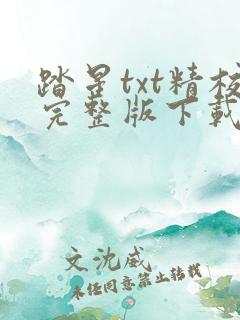 踏星txt精校
完整版下载
文沈威
未经同意禁止转载